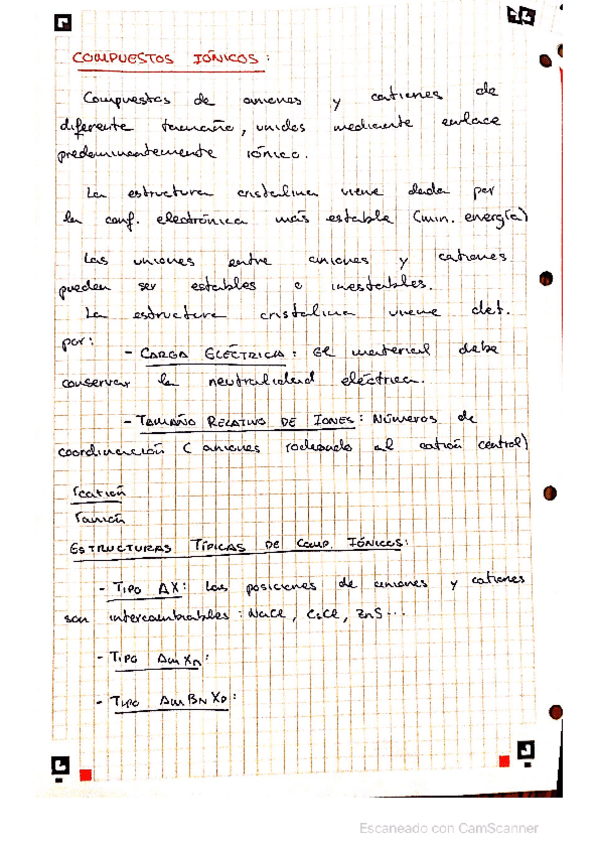 COMPUESTOS IÓNICOS:
Compuestos de aniones y cationes de
diferente tamaño, unidos mediante enlace
predominantemente iónico.
La estructura cristalina viene dada por
la conf. electrónica más estable (min. energía)
Las uniones entre aniones y cationes
pueden ser estables o inestables.
La estructura cristalina viene det.
por:
- CARGA ELÉCTRICA: El material debe
conservar la neutralidad eléctrica.
- TAMAÑO RELATIVO DE IONES: Números de
coordinación (aniones rodeando al catión central)
rcatión
ranión
ESTRUCTURAS TÍPICAS DE COMP. IÓNICOS:
- TIPO AX: Las posiciones de aniones y cationes
son intercambiables: NaCl, CsCl, ZnS...
- TIPO AmXn:
- TIPO AmBnXp:
Escaneado con CamScanner